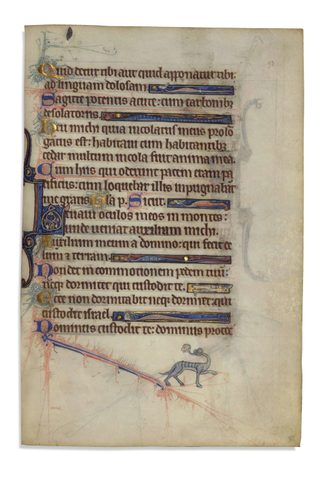 Quid detur tibi aut quid apponatur tibi:
ad linguam dolosam
Sagitte potentis acute: cum carbonibꝫ
desolatoriis.
Heu michi quia incolatus meus prolo
gatus est: habitaui cum habitantibꝫ
cedar multum incola fuit anima mea.
Cum hiis qui oderunt pacem eram pa
cificus: cum loquebar illis inpugnabāt
me gratis p̄s. Sicut.
Leuaui oculos meos in montes:
unde ueniat auxilium michi.
Auxilium meum a domino: qui fecit ce
lum ⁊ terram.
Non det in commotionem pedem tuū:
neqꝫ dormitet qui custodit te.
Ecce non dormitabit neqꝫ dormiet qui
custodit israel.
Dominus custodit te: dominus protec